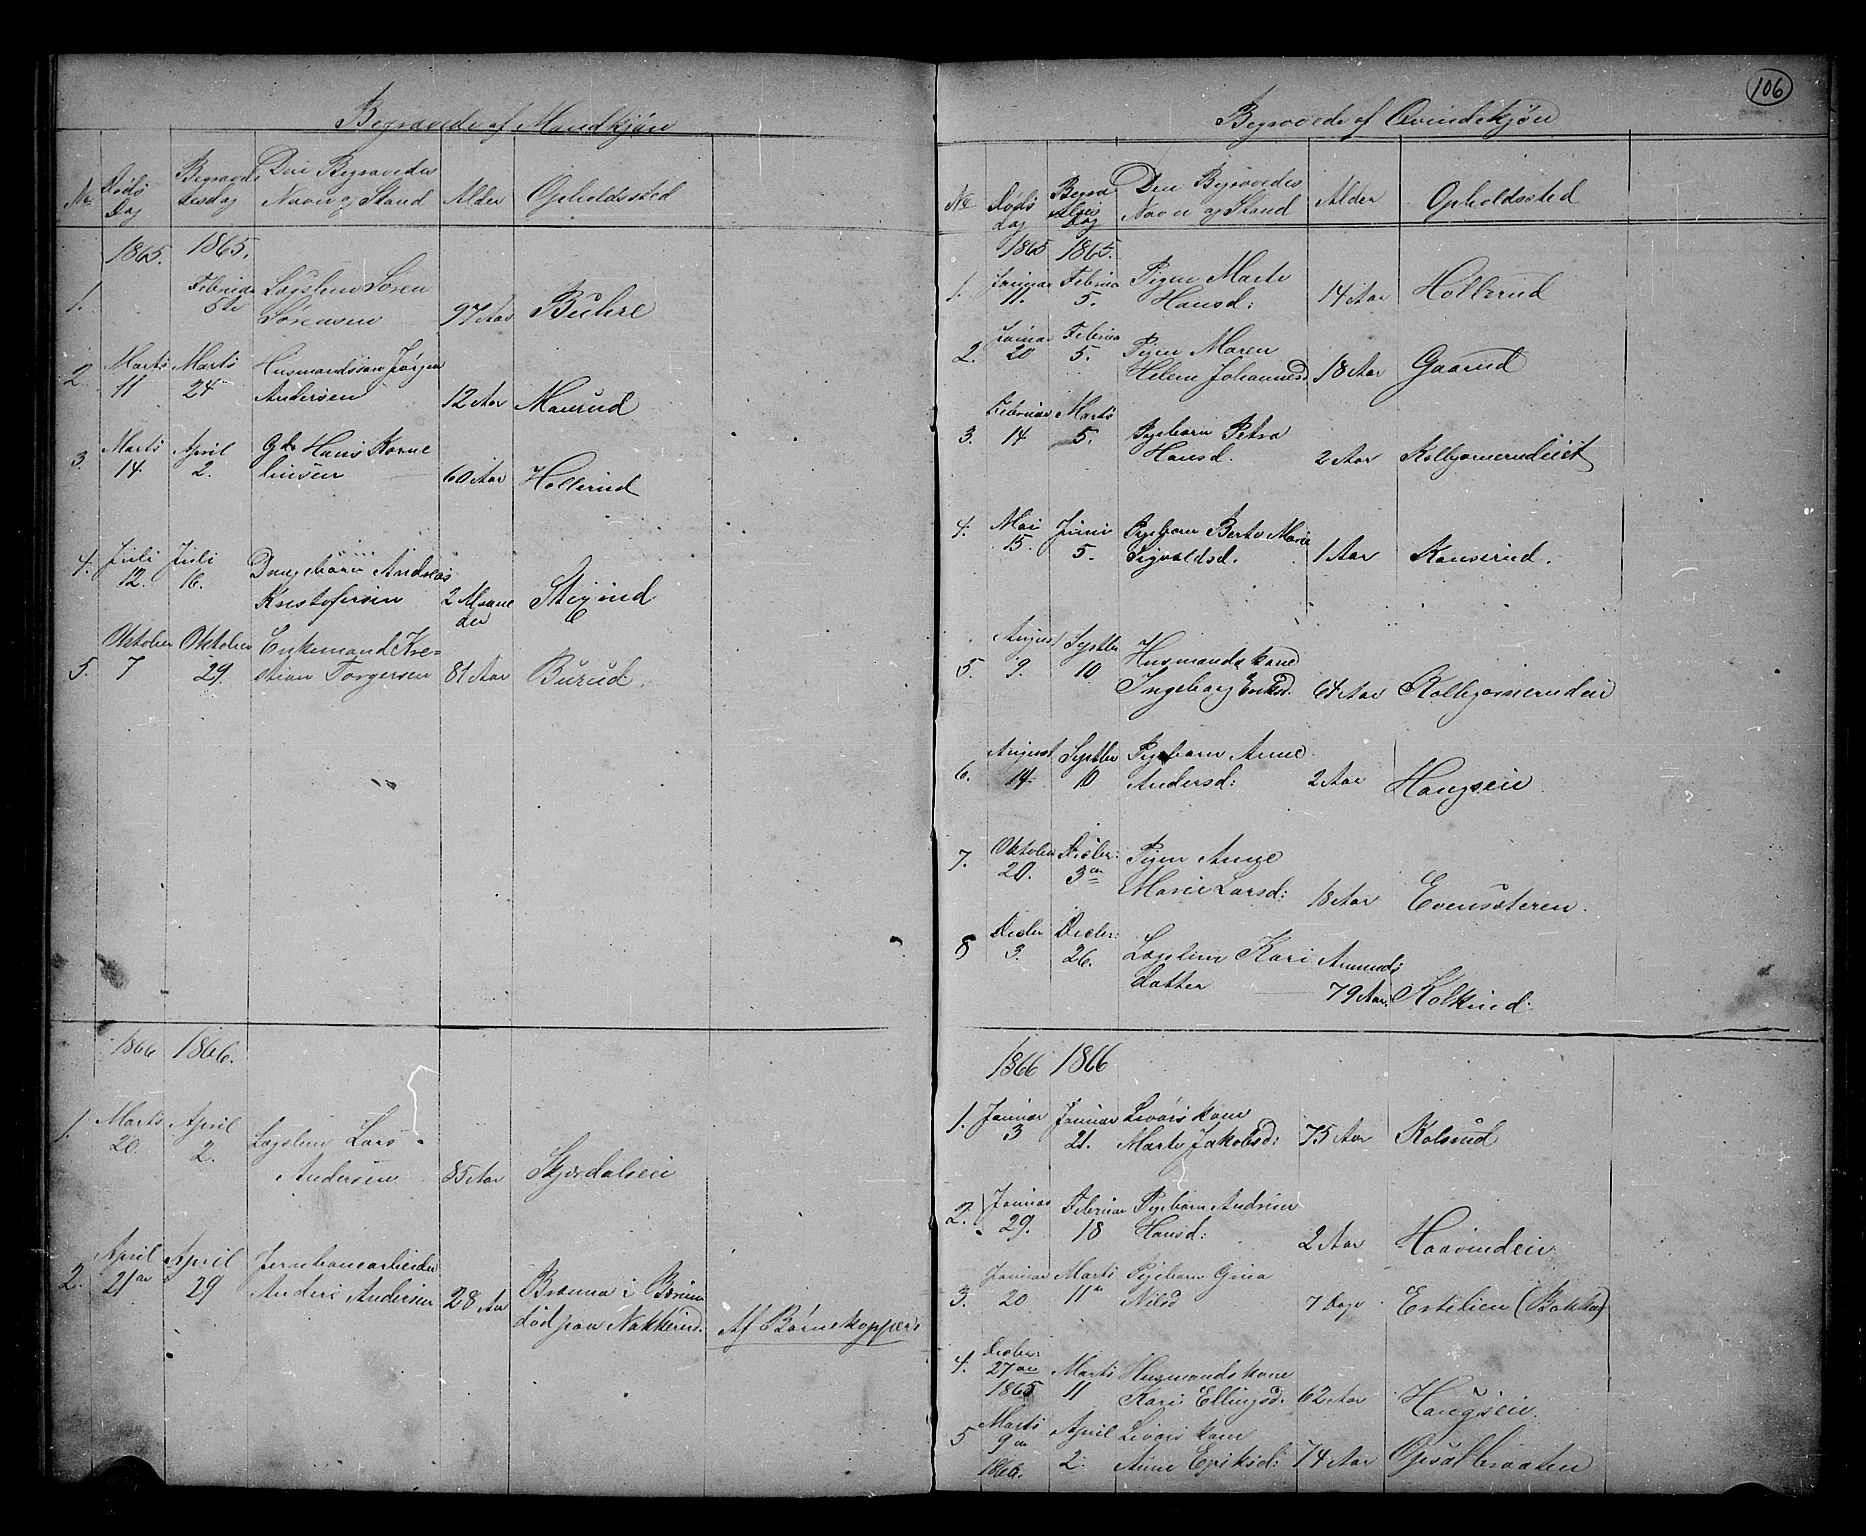 106
Begravede af Mandkjøn
No
Døds
Dag
Begravel
sesdag
Den Begravedes
Navn og Stand
Alder
Opholdssted
1865.
1865.
1.
Februar
5te
Lægslem Søren
Sørensen
97 Aar
Buhre
2.
Marts
11
Marts
24
Husmandssøn Jørgen
Andersen
12 Aar
Maurud
3.
Marts
14
April
2.
Hans Korne
liusen
60 Aar
Hollerud
4.
Juli
12.
Juli
16.
Drengebarn Andreas
Kristofersen
2 Maane
der
Stixrud
5.
Oktober
7
Oktober
29.
Enkemand Kre=
stian Torgersen
81 Aar
Burud.
1866
1866.
1.
Marts
20.
April
2.
Lægslem Lars
Andersen
85 Aar
Skjærdalseie
2.
April
21de
April
29
Jernbanearbeider
Anders Andersen
28 Aar
død paa Nakkerud.
Af Børnekopper
Begravede af Qvindekjøn
No
Døds
dag
Begra
velses
Dag
Den Begravedes
Navn og Stand
Alder
Opholdssted
1865
1865.
1.
Januar
11.
Februar
5.
Pigen Marte
Hansd:
14 Aar
Hollerud
2.
Januar
20
Februar
5.
Pigen Maren
Helene Johannesd.
18 Aar
Gaarud
3.
Februar
14
Marts
5.
Pigebarn Petra
Hansd.
2 Aar
Kolbjørnrudeiet
4.
Mai
15.
Juni
5.
Pigebarn Berte Marie
Sigvaldsd.
1 Aar
Konserud.
5.
August
9.
Septbr
10
Husmandskone
Ingeborg Eriksd.
64 Aar
Kolbjørnsrudeie
6.
August
14
Septbr
10
Pigebarn Anne
Andersd:
2 Aar
Haugseie
7.
Oktober
20.
Decbr:
3die
Pigen Inge
Marie Larsd:
18 Aar
Evensæteren.
8
Decbr
3.
Decbr:
26.
Lægslem Kari Amunds
datter
79 Aar.
Kolkind.
1866
1866
1.
Januar
3
Januar
21.
Livørskone
Marte Jakobsd:
75 Aar
Kolsrud
2.
Januar
29.
Februar
18
Pigebarn Andrine
Hansd:
2 Aar
Haavindeie
3.
Januar
20
Marts
11te
Pigebarn Gina
Nilsd
7 Dage
Ertelien (Bakken)
4.
Decbr:
27de
1865
Marts
11
Husmandskone
Kari Ellingsd.
62 Aar
Haugseie.
5
Marts
9de
1866.
April
2.
Livørskone
Anne Eriksd:
74 Aar
Opsalbraaten